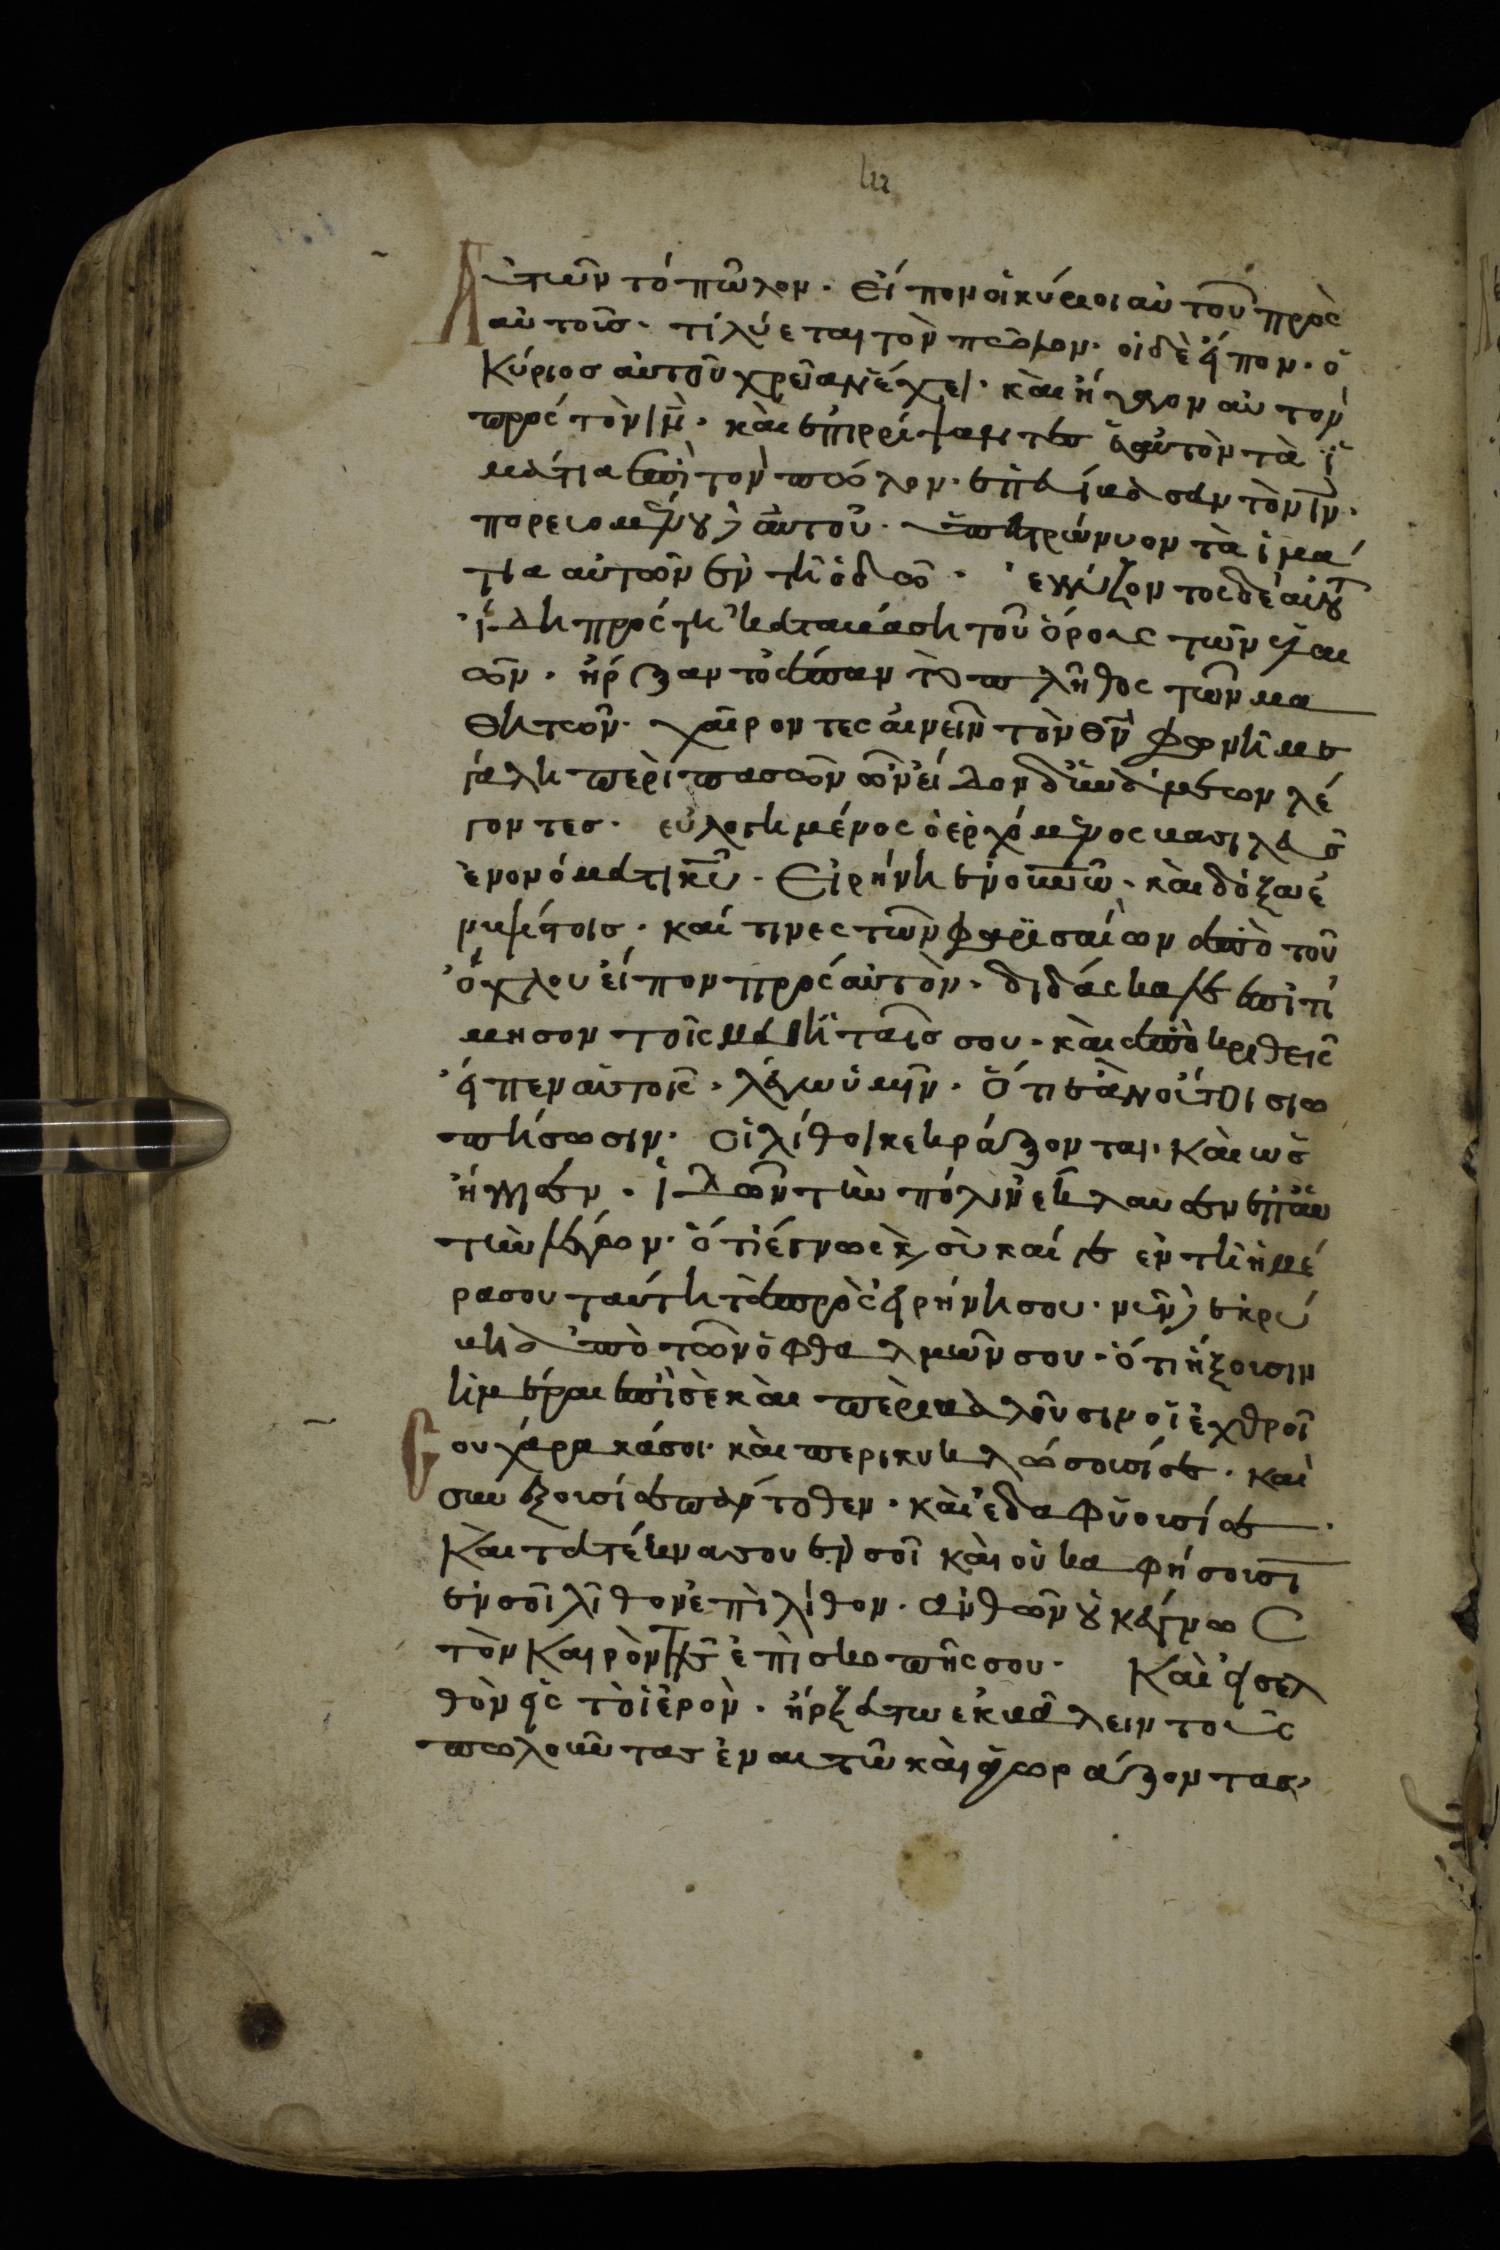 Αὐτῶν τὸ πῶλον. εἶπον οἱ κύριοι αὐτοῦ πρὸς
αὐτοῖς. τί λύεται τὸν πῶλον. οἱ δὲ εἶπον. ὁ
Κύριος αὐτοῦ χρείαν ἔχει. καὶ ἤγαγον αὐτὸν
πρὸς τὸν ιν̅. καὶ ἐπιρρίψαντες ἑαυτὸν τὰ ἱ
μάτια ἐπὶ τὸν πῶλον. ἐπεβίβασαν τὸν ιν̅.
πορευομένου δὲ αὐτοῦ. ὑπεστρώννυον τὰ ἱμά
τια αὐτῶν ἐν τῇ ὁδῶ. ἐγγίζοντος δὲ αὐτοῦ
ἤδη πρὸς τῇ καταβάση τοῦ ὄρους τῶν ἐλαι
ῶν. ἤρξαντο ἅπαν τὸ πλῆθος τῶν μα
θητῶν. χαίροντες αἰνεῖν τὸν θν̅ φωνῇ με
γάλη περὶ πασῶν ὧν εἶδον δυνάμεων λέ
γοντες. εὐλογημένος ὁ ἐρχόμενος βασιλεὺς
ἐν ὀνόματι κυ̅. Εἰρήνη ἐν οὐνῶ. καὶ δόξα ἐ
ν ὑψίστοις. καί τινες τῶν φαρισαίων ἀπὸ τοῦ
ὄχλου εἶπον πρὸς αὐτὸν. διδάσκαλε ἐπιτί
μησον τοῖς μαθηταῖς σου. καὶ ἀποκριθεὶς
εἶπεν αὐτοῖς. λέγω ὑμῖν. ὅτι ἐὰν οὗτοι σιω
πήσωσιν. οἱ λίθοι κεκράξονται. καὶ ὡς
ἤγγισεν. ἰδὼν τὴν πόλιν ἔκλαυσεν ἐπ᾽ αὐ
τὴν λέγων. ὅτι ἔγνως καὶ σὺ καί γε ἐν τῇ ἡμέ
ρα σου ταύτη τὰ πρὸς εἰρήνη σου. νῦν δὲ ἐκρύ
βη ἀπὸ τῶν ὀφθαλμῶν σου. ὅτι ἥξουσιν
ἡμέραι ἐπὶ σὲ καὶ περιβαλοῦσιν οἱ ἐχθροί
σου χάρακά σοι. καὶ περικυκλώσουσί σε. καὶ
συνέξουσί σε πάντοθεν. καὶ ἐδαφιοῦσί σε.
Καὶ τὰ τέκνα σου ἐν σοὶ καὶ οὐκ ἀφήσουσι
ἐν σοὶ λίθον ἐπὶ λίθον. ἀνθ᾽ ὧν οὐκ ἔγνως
τὸν καιρὸν τῆς ἐπισκοπῆς σου. Καὶ εἰσελ
θὸν εἰς τὸ ἱερὸν. ἤρξατω ἐκβάλειν τοὺς
πωλοῦντας ἐν αὐτῶ καὶ ἀγωράζοντας.